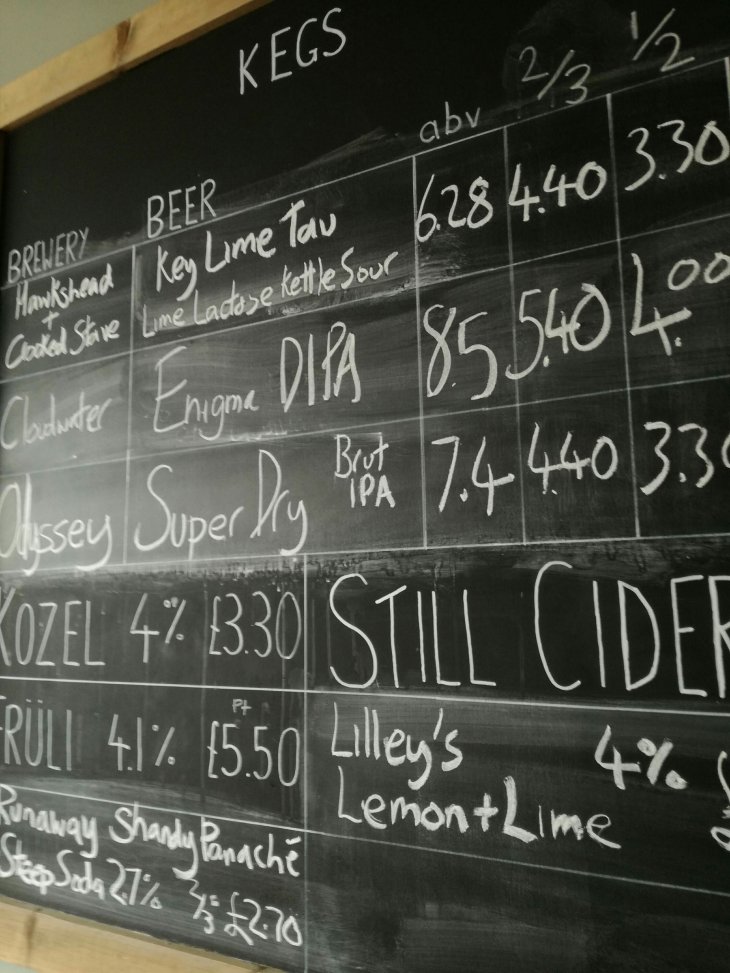 KEGS
BREWERY BEER abv 2/3 1/2
Hawkshead
+
Crooked Stave
Key Lime Tau
Lime Lactose Kettle Sour
6.28 4.40 3.30
Cloudwater Enigma DIPA 8.5 5.40 4.00
Odyssey Super Dry Brut
IPA
7.4 4.40 3.30
KOZEL 4% £3.30
FRÜLI 4.1% Pt £5.50
Runaway Shandy Panaché
Steep Soda 2.7% 2/3 £2.70
STILL CIDER
Lilley's 4%
Lemon + Lime